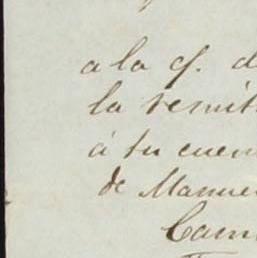 a la cf. d
la remit
á tu cuen
de Manue
Cam